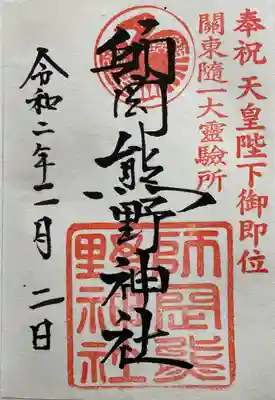 奉祝 天皇陛下御即位
關東隨一大靈驗所
師岡熊野神社
令和二年二月二日
師岡熊
野神社